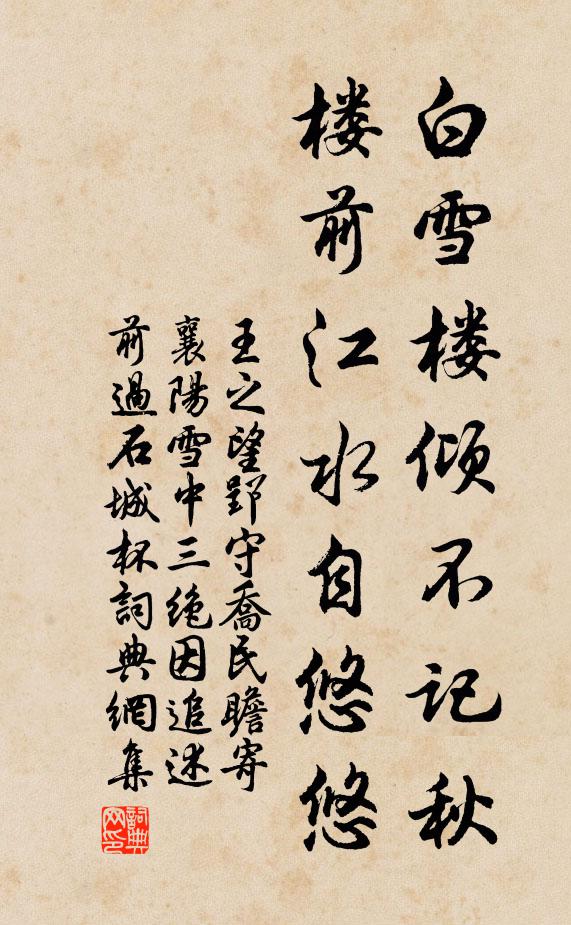 白雪楼倾不记秋
楼前江水自悠悠
王之望郢守喬民瞻寄
襄陽雪中三绝因追述
前過石城杯詞典網集
詞典网印